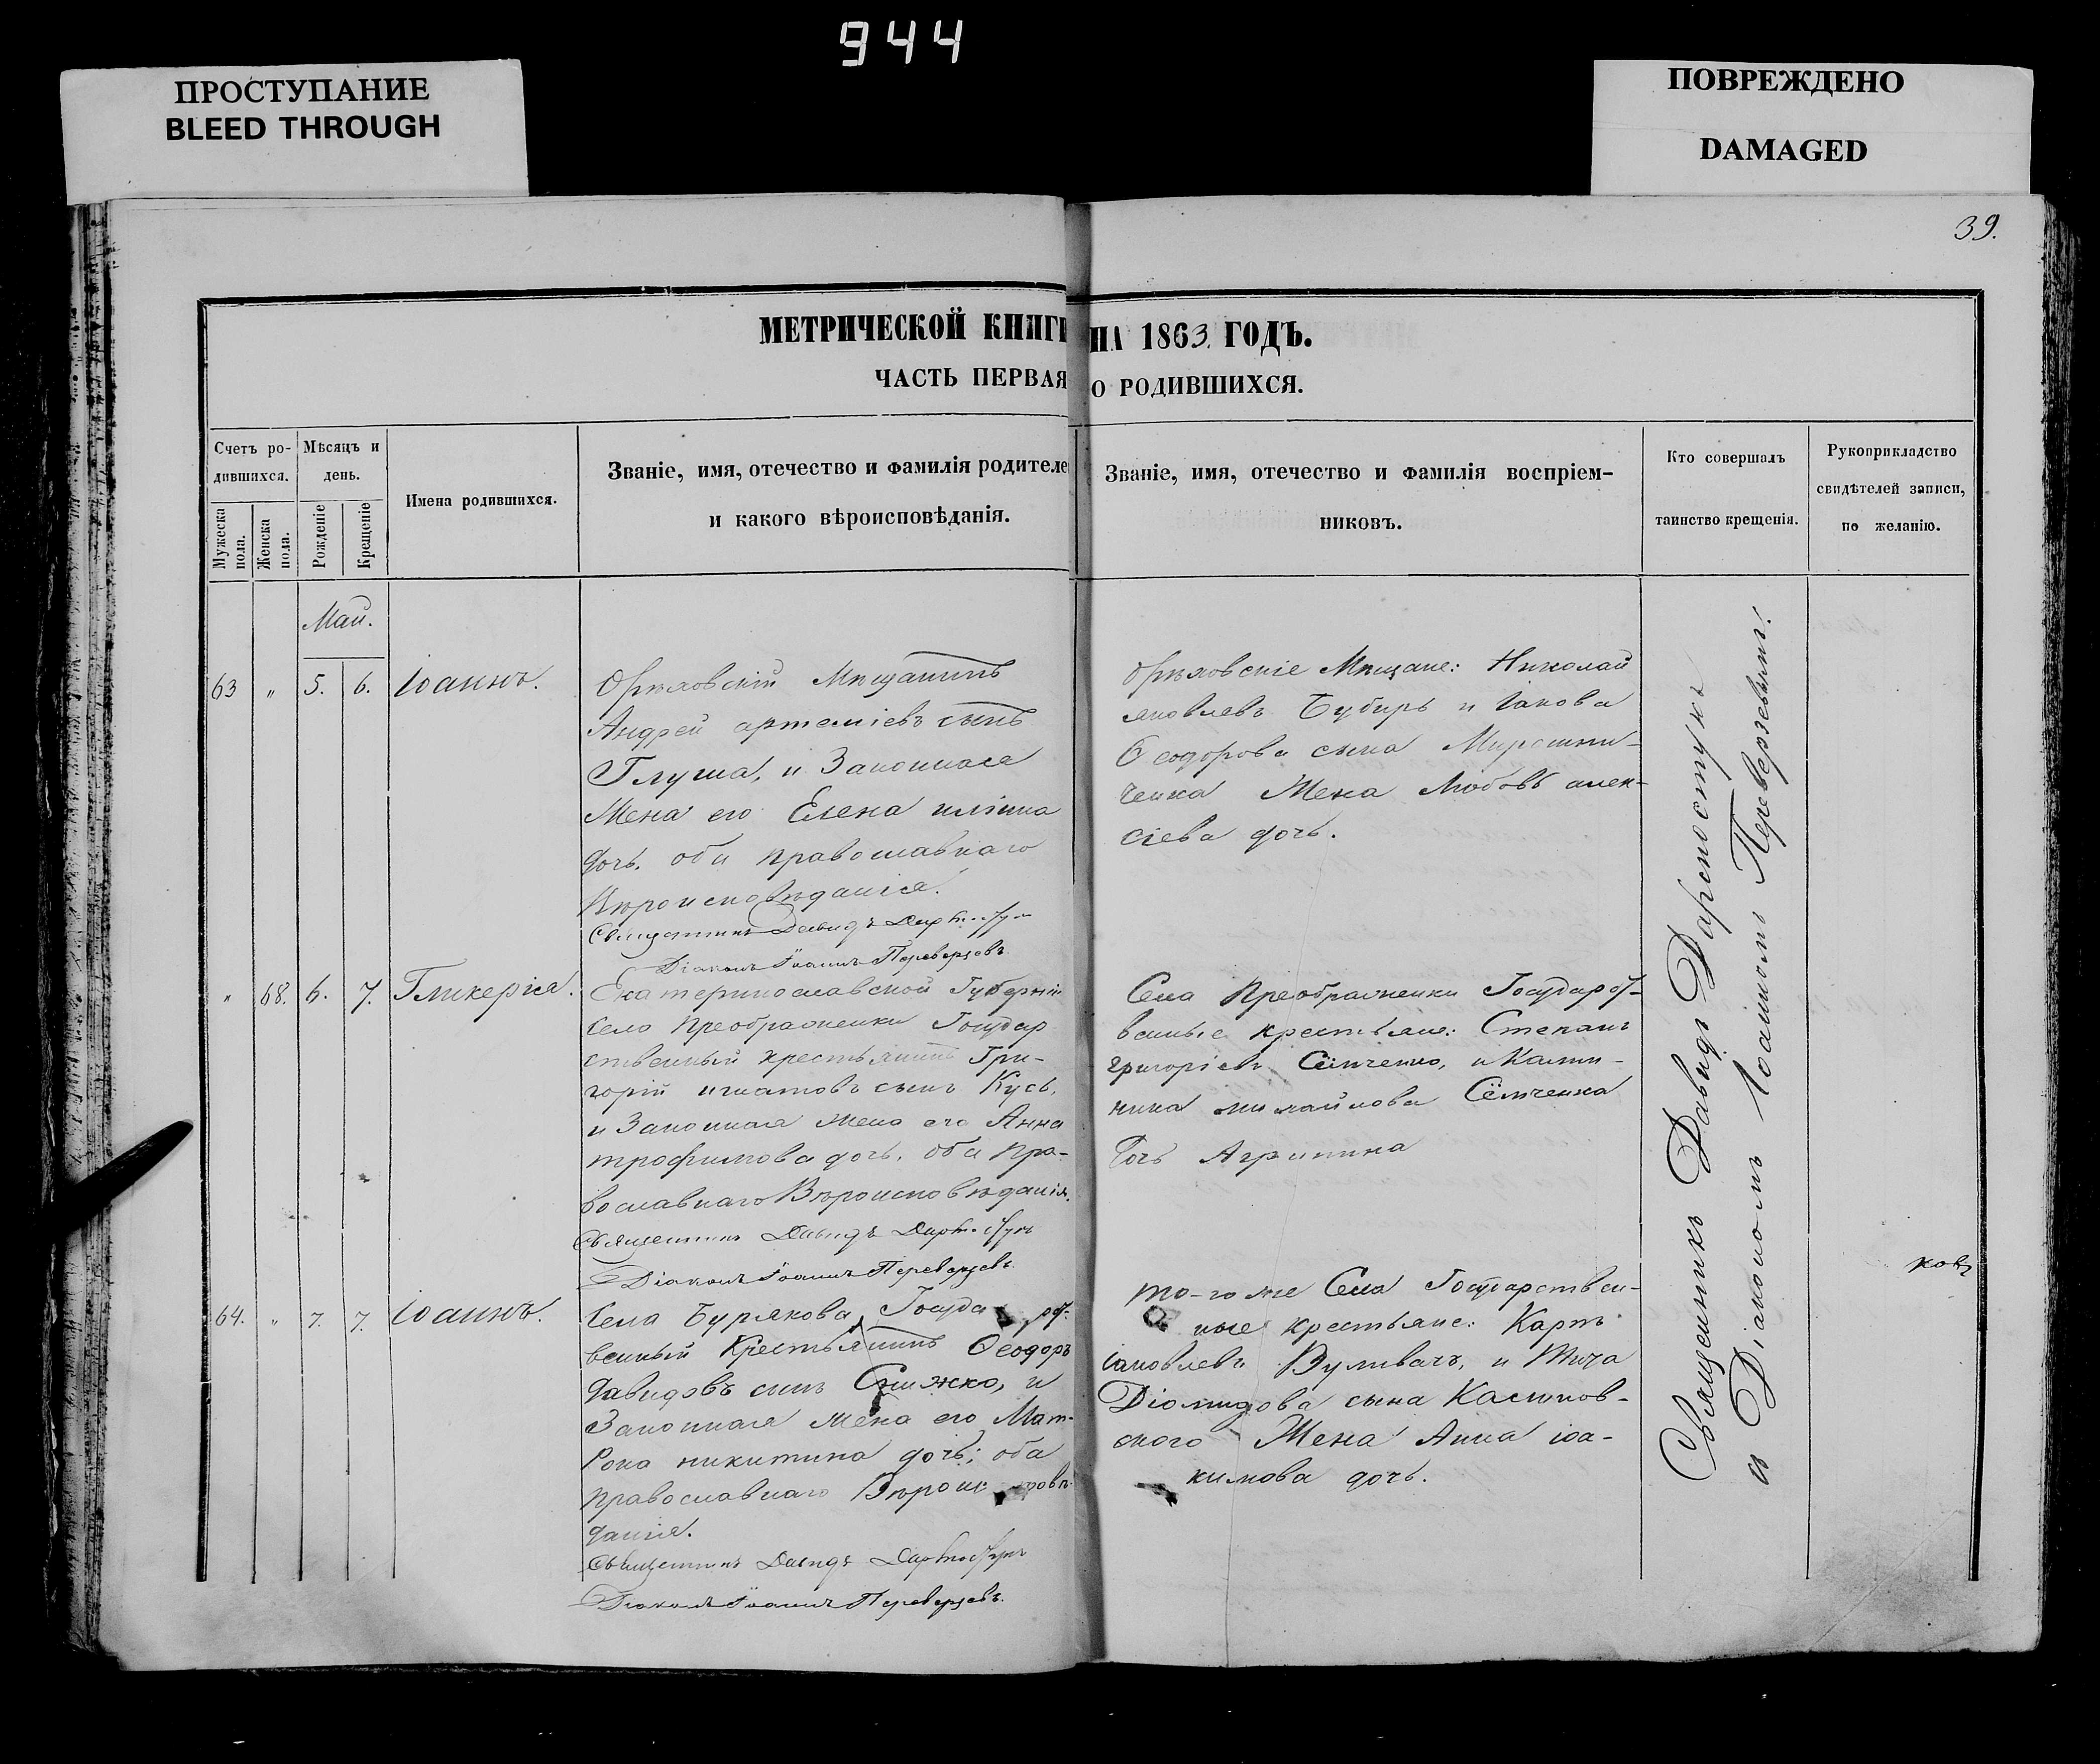 944
ПРОСТУПАНИЕ
BLEED THROUGH
ПОВРЕЖДЕНО
DAMAGED
39.
МЕТРИЧЕСКОЙ КНИГИ НА 1863. ГОДЪ.
ЧАСТЬ ПЕРВАЯ О РОДИВШИХСЯ.
Счетъ ро-
дившихся.
Мужеска пола.
Женска пола.
Мѣсяцъ и
день.
Рожденіе
Крещеніе
Имена родившихся.
Званіе, имя, отечество и фамилія родителе
и какого вѣроисповѣданія.
Званіе, имя, отечество и фамилія воспріем-
никовъ.
Кто совершалъ
таинство крещенія.
Рукоприкладство
свидѣтелей записи,
по желанію.
Май.
63 " 5. 6. Іоаннъ.
Орѣховскій Мѣщанинъ
Андрей артеміевъ сынъ
Глуша, и Законная
Жена его Елена иліина
дочь. оба православнаго
Вѣроисповѣданія.
Священникъ Давидъ
Діаконъ Іоаннъ Переверзевъ.
Орѣховскіе Мѣщане: Николай
яковлевъ Бубирь и Іакова
Ѳеодорова сына Мирошни-
ченка Жена Любовь алек-
сіева дочь.
" 68. 6. 7. Гликерія.
Екатеринославской Губерніи
Села Преображенки Государ
ственный крестьянинъ Гри-
горій игнатовъ сынъ Кусь,
и Законная жена его Анна
трофимова дочь. оба Пра-
вославнаго Вѣроисповѣданія.
Священникъ Давидъ
Діаконъ Іоаннъ Переверзевъ.
Села Преображенки Государст-
венные крестьяне: Степанъ
григоріевъ Сёмченко, и Кали-
ника михайлова Сёмченка
дочь Агрипина
64. " 7. 7. Іоаннъ.
Села Бурякова, Государст-
венный Крестьянинъ Ѳеодоръ
давидовъ сынъ Снижко, и
Законная жена его Мат-
рона никитина дочь; оба
православнаго Вѣроисповѣ-
данія.
Священникъ Давидъ
Діаконъ Іоаннъ Переверзевъ.
того-же Села Государствен-
ные крестьяне: Карпъ
іаковлевъ и
Діомидова сына
Жена Анна іоа-
кимова дочь.
Священникъ Давидъ
съ Діакономъ Іоанномъ Переверзевымъ.
ковъ